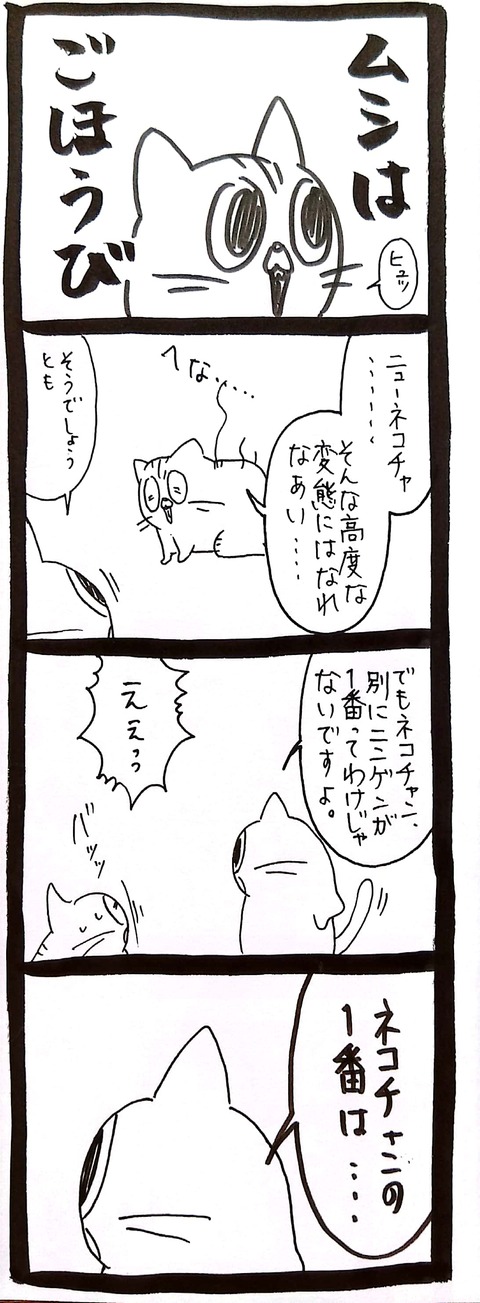 ムシは
ごほうび
ヒュッ
ニューネコチャ
……
そんな高度な
変態にはなれ
なあい……
へな……
そうでしょう
とも
でもネコチャン、
別にニンゲンが
1番ってわけじゃ
ないですよ。
ええっっ
バッッ
ネコチャンの
1番は……